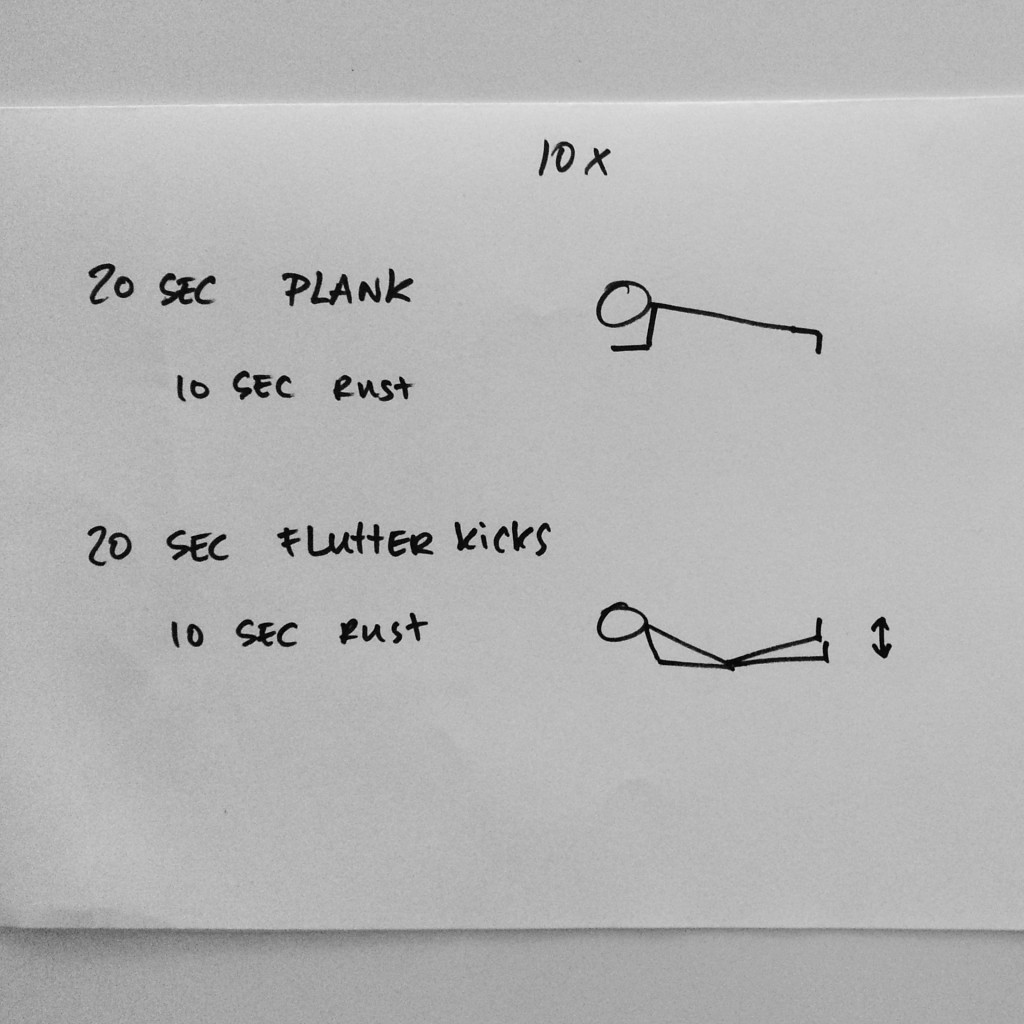 10 x
20 SEC PLANK
10 SEC Rust
20 SEC FLuttER kicks
10 SEC Rust